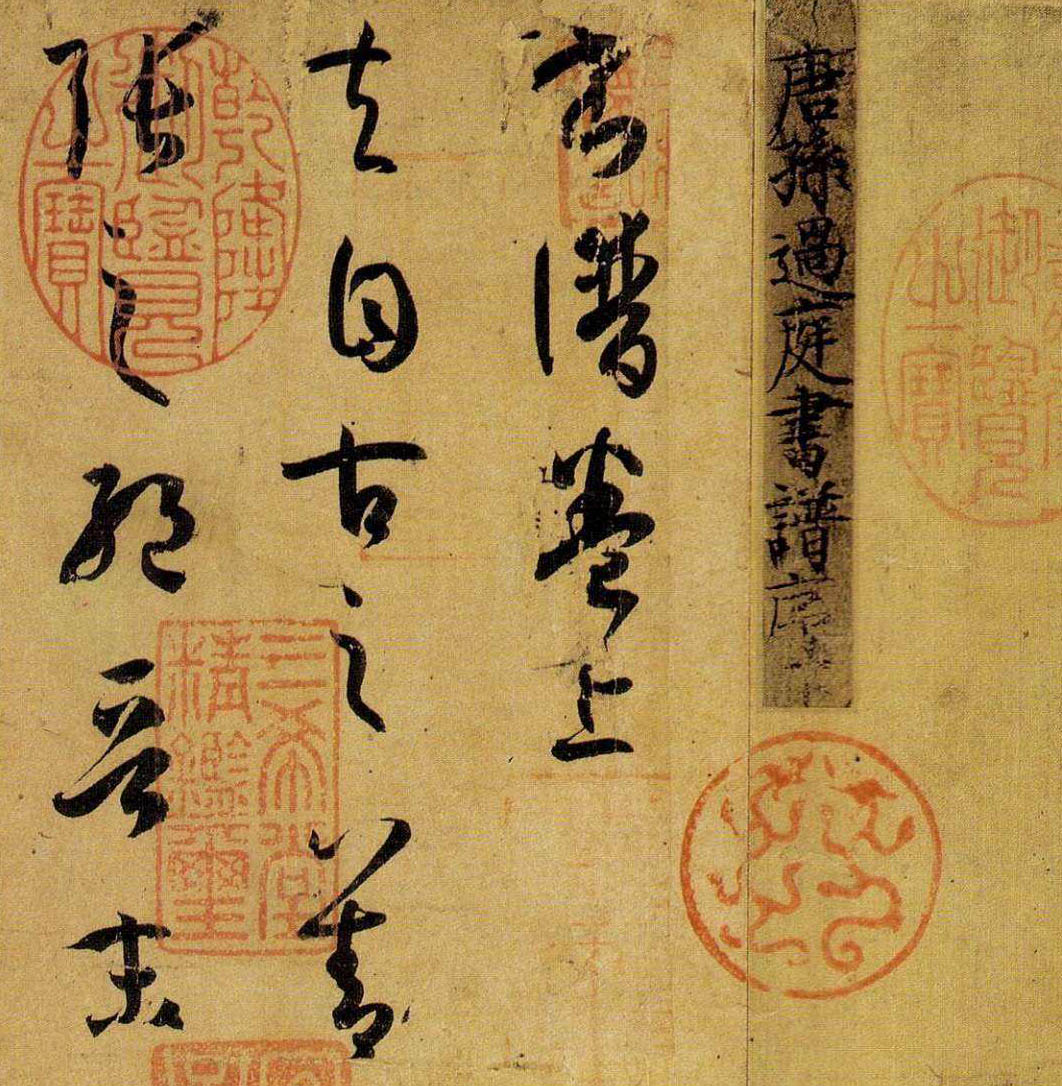 御覽
之寶
唐孫過庭書譜序
書譜卷上
夫自古之善
張之絕晉末
乾隆
御覽
之寶
三希堂
精鑑璽